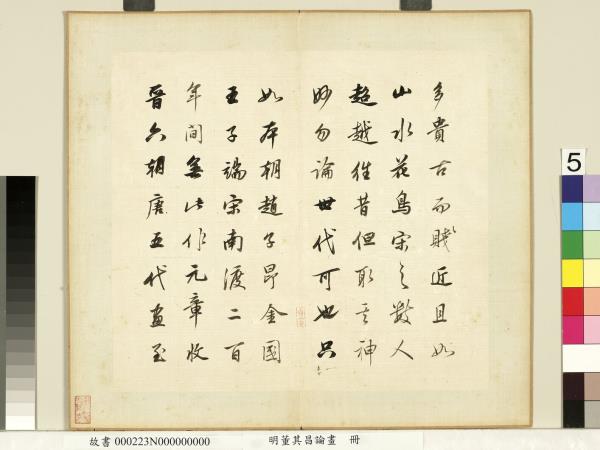 多貴古而賤近且如
山水花鳥宋之數人
超越往昔但取其神
妙勿論世代可也只
如本朝趙子昂金國
王子端宋南渡二百
年間無此作元章收
晉六朝唐五代畫至
故書 000223N000000000
明董其昌論畫 冊
5